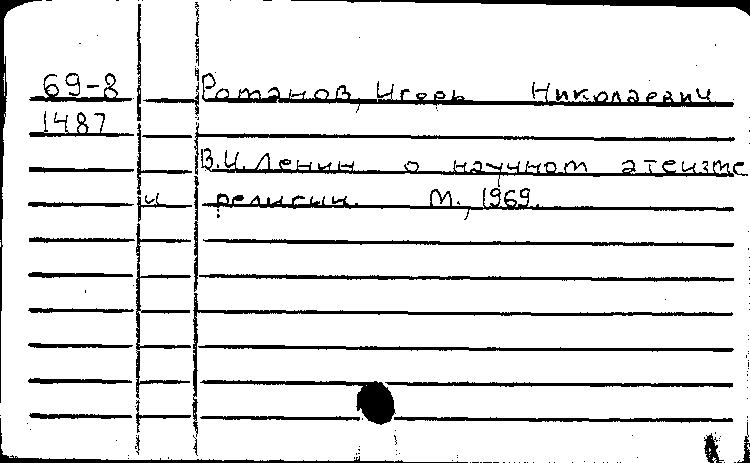 69-8 Романов, Игорь Николаевич
1487
В.И. Ленин о научном атеизме
и религии. М., 1969.